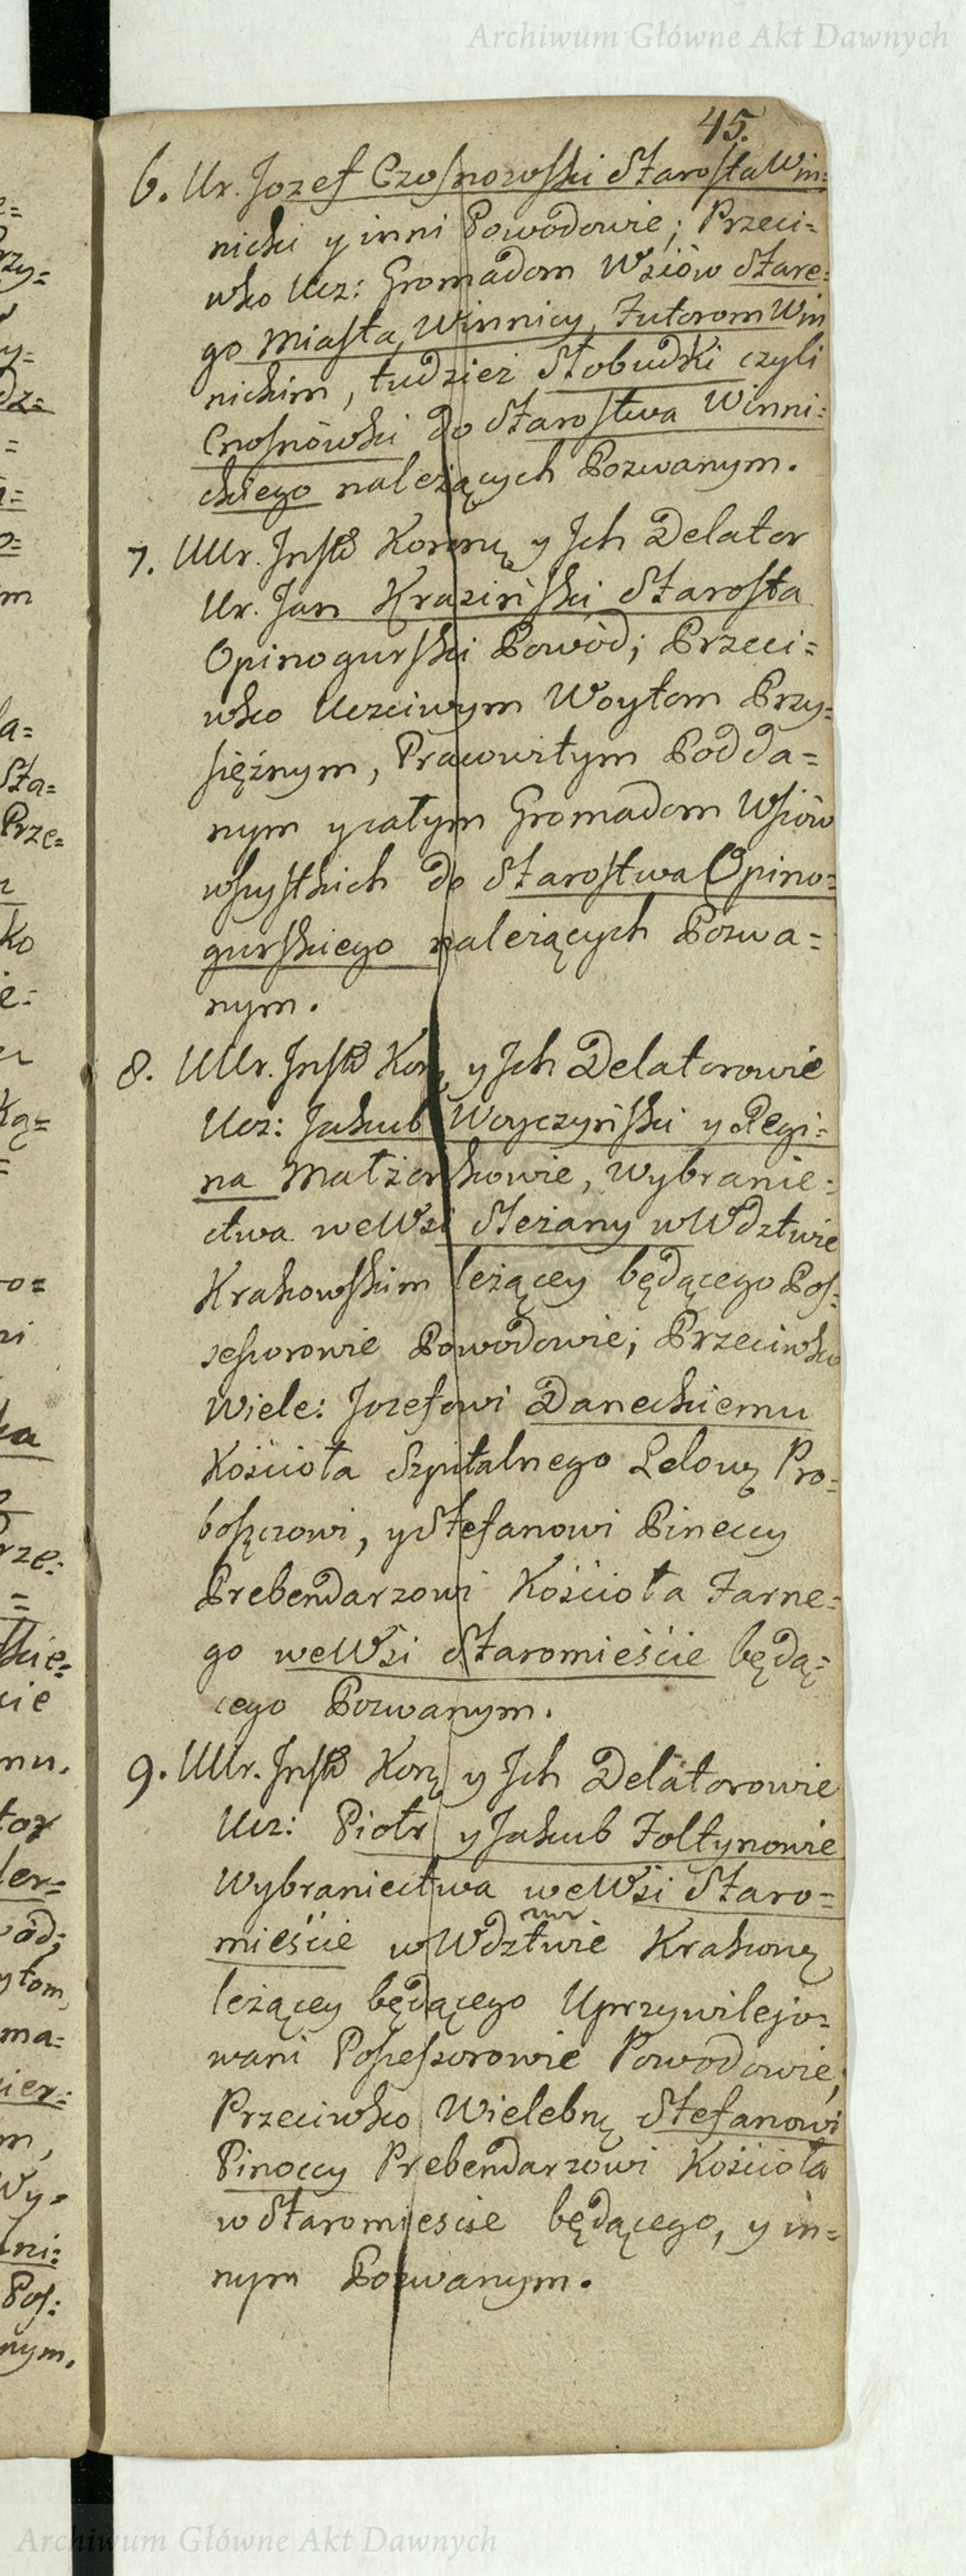 Archiwum Główne Akt Dawnych
45.
6. Ur. Jozef Czosnowski Starosta Win=
nicki y inni Powodowie; Przeci=
wko Ucz: Gromadom Wsiów Stare=
go Miasta, Winnicy, Futorom Win
nickim, tudzież Słobudki czyli
Cnosnówki do Starostwa Winni=
ckiego należących Pozwanym.
7. UUr. Insti Koronę y Ich Delator
Ur. Jan Krasiński Starosta
Opinogurski Powód; Przeci=
wko Uczciwym Woytom Przy=
siężnym, Pracowitym Podda=
nym y całym Gromadom Wsiów
wszystkich do Starostwa Opino=
gurskiego należących Pozwa=
nym.
8. UUr. Insti Korę y Ich Delatorowie
Ucz: Jakub Woyczyński y Regi=
na Małżonkowie, Wybranie=
ctwa we Wsi Sleżany w Wdztwie
Krakowskim leżącey będącego Pos=
sessorowie Powodowie; Przeciwko
Wiele: Jozefowi Daneckiemu
Kościoła Szpitalnego Lelowę Pro=
boszczowi, y Stefanowi Pineccy
Prebendarzowi Kościoła Farne=
go we Wsi Staromieście będą=
cego Pozwanym.
9. UUr. Insti Korę y Ich Delatorowie
Ucz: Piotr y Jakub Foltynowie
Wybraniectwa we Wsi Staro=
mieście w Wdztwie Krakowę
leżącey będącego Uprzywilejo=
wani Possessorowie Powodowie;
Przeciwko Wielebnę Stefanowi
Pinoccy Prebendarzowi Kościoła
w Staromiescie będącego, y in=
nym Pozwanym.
Archiwum Główne Akt Dawnych